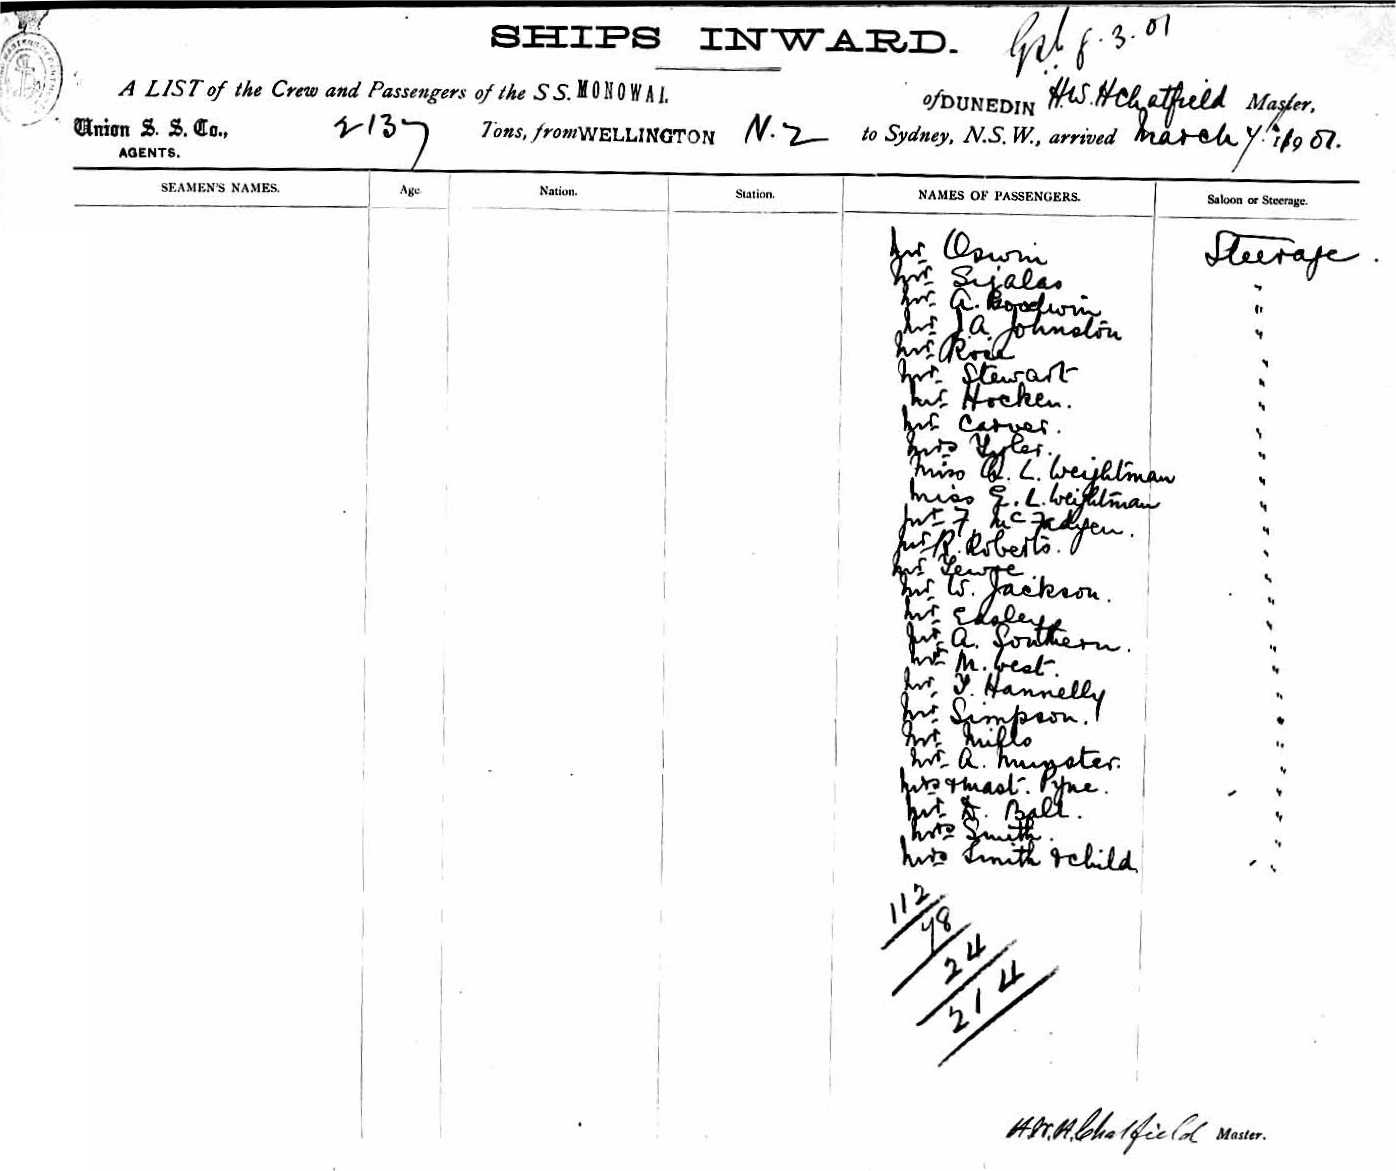 SHIPS INWARD.
8.3.01
A LIST of the Crew and Passengers of the S S. MONOWAI.
of DUNEDIN H.W.H Chatfield Master,
Union S. S. Co.,
AGENTS.
2137 Tons, from WELLINGTON N.Z to Sydney, N.S.W., arrived March 7th 1901.
SEAMEN'S NAMES. Age. Nation. Station. NAMES OF PASSENGERS. Saloon or Steerage.
Mr Oswin Steerage.
Mr Sijalas "
Mr A. Goodwin "
Mr J.A. Johnston "
Mr Rose "
Mr Stewart "
Mr Hocken. "
Mr Carver. "
Mrs Tyler. "
Miss L. Weightman "
Miss E. L. Weightman "
Mr F. McFadyen. "
Mr R. Roberts. "
Mr "
Mr W. Jackson. "
Mr Easley "
Mr A. Southern. "
Mr M. West. "
Mr T. Hannelly "
Mr Simpson. "
Mr Mills "
Mr A. Munster. "
Mrs & Mast. Pyne. "
Mr D. Ball. "
Mrs Smith. "
Mrs Smith & child "
112
78
24
214
H.W.H. Chatfield Master.